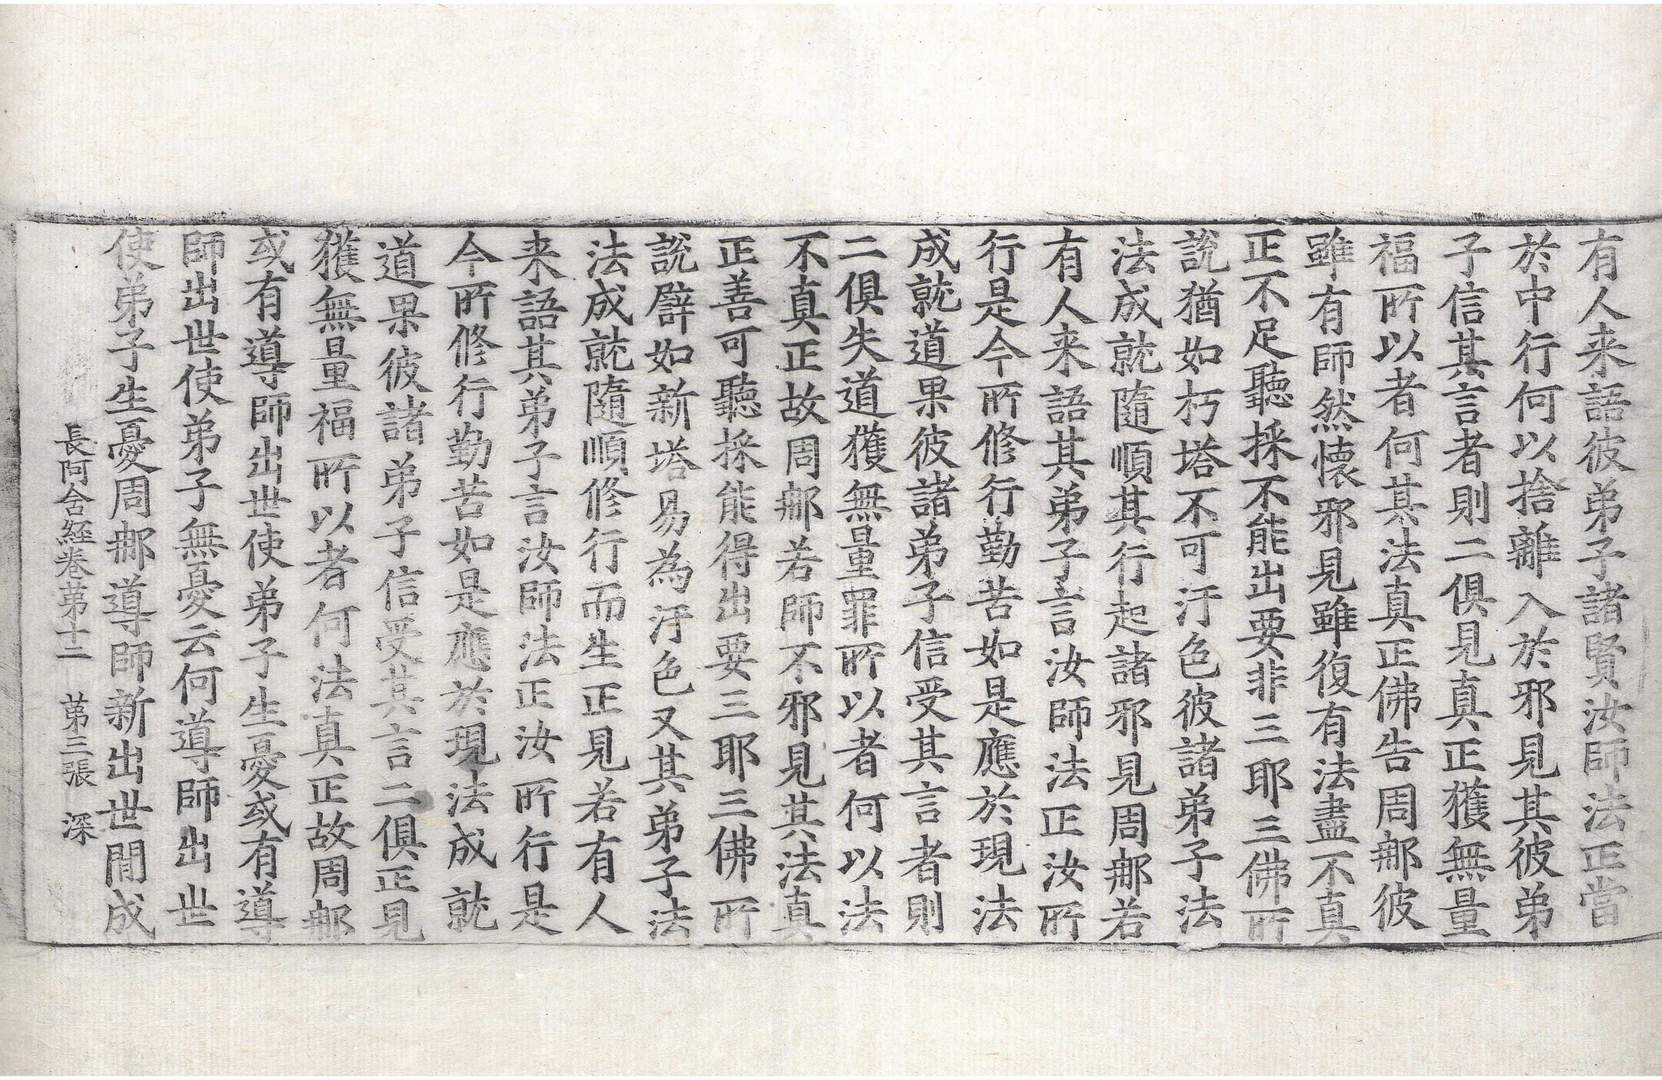 有人来語彼弟子諸賢汝師法正當
於中行何以捨離入於邪見其彼弟
子信其言者則二俱見真正獲無量
福所以者何其法真正佛告周那彼
雖有師然懷邪見雖復有法盡不真
正不足聽採不能出要非三耶三佛所
說猶如朽塔不可汙色彼諸弟子法
法成就隨順其行起諸邪見周那若
有人来語其弟子言汝師法正汝所
行是今所修行勤苦如是應於現法
成就道果彼諸弟子信受其言者則
二俱失道獲無量罪所以者何以法
不真正故周那若師不邪見其法真
正善可聽採能得出要三耶三佛所
說譬如新塔易為汙色又其弟子法
法成就隨順修行而生正見若有人
来語其弟子言汝師法正汝所行是
今所修行勤苦如是應於現法成就
道果彼諸弟子信受其言二俱正見
獲無量福所以者何法真正故周那
或有導師出世使弟子生憂或有導
師出世使弟子無憂云何導師出世
使弟子生憂周那導師新出世間成
長阿含經卷第十二 第三張 深